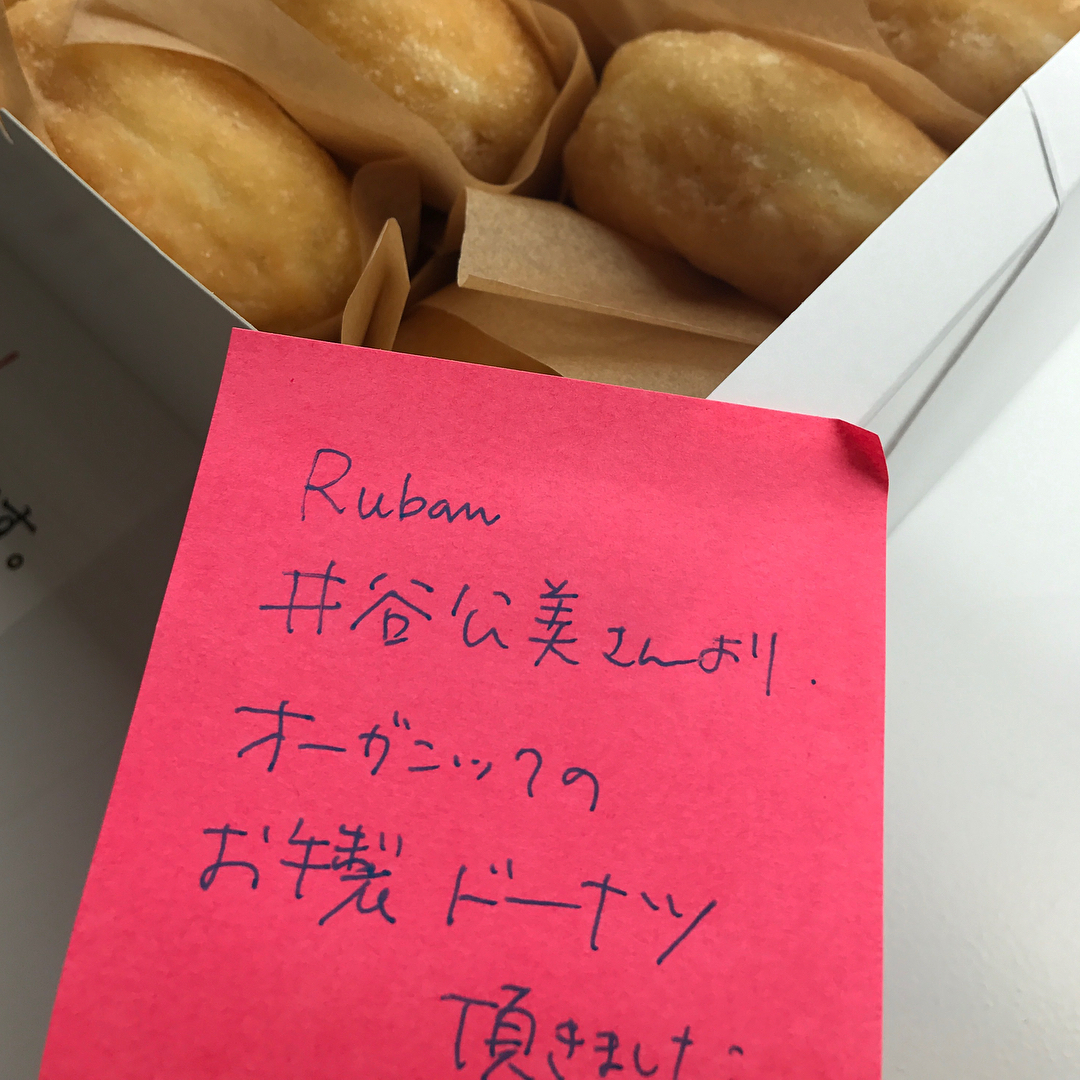 す。
Ruban
井谷公美さんより.
オーガニックの
お手製 ドーナツ
頂きました.